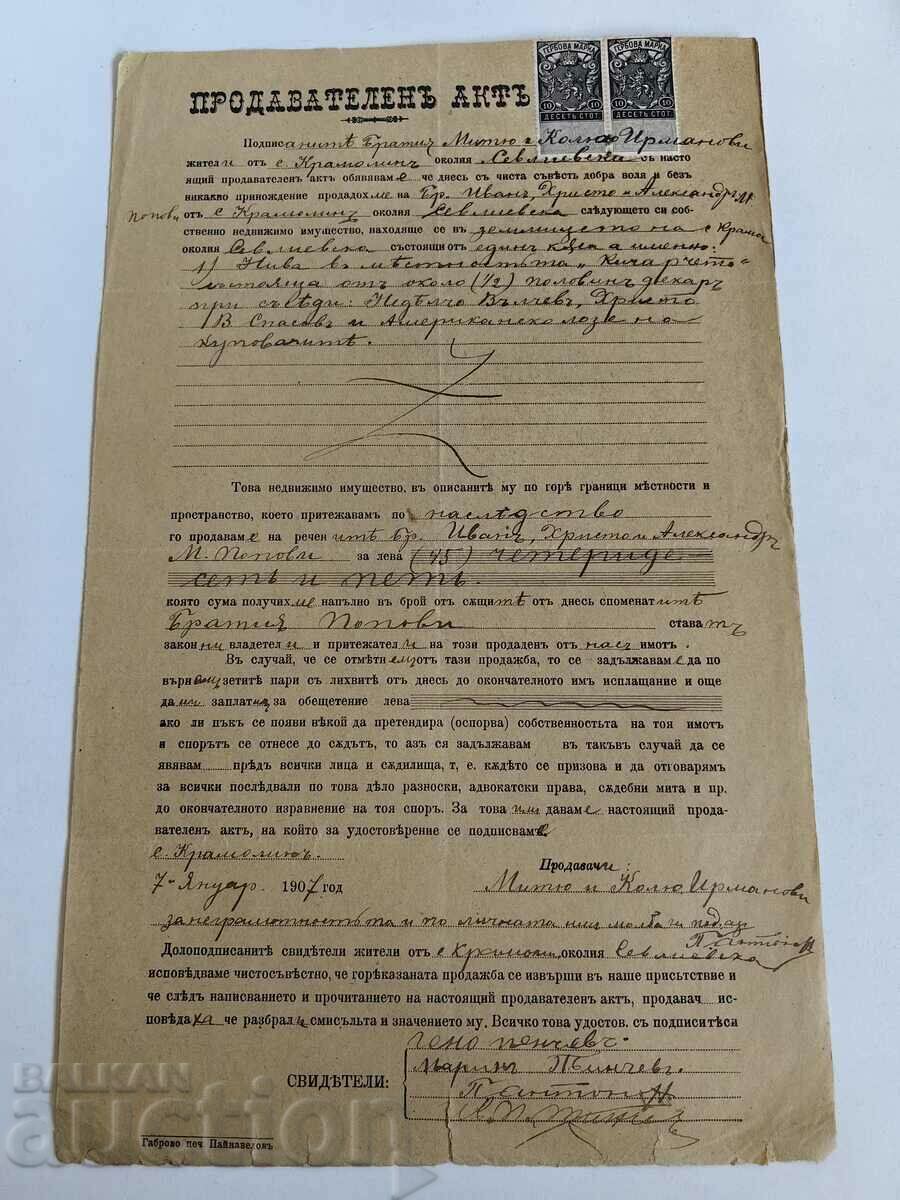 ГЕРБОВА МАРКА ГЕРБОВА МАРКА
10 10 10 10
ДЕСЕТЬ СТОТ. ДЕСЕТЬ СТОТ.
ПРОДАВАТЕЛЕНЪ АКТЪ
Подписанитѣ Братия Митю и Колю Ирманови
жители отъ с. Крамолинъ околия Севлиевска съ насто
ящий продавателенъ актъ обявяваме че днесь съ чиста съвѣсть добра воля и безъ
никакво принождение продадохме на Бр. Иванъ, Христо и Александръ М.
Попови отъ с. Крамолинъ околия Севлиевска следующето си соб-
ственно недвижимо имущество, находяще се въ землището на с. Крамол.
околия Севлиевска състоящи отъ единъ къса а именно:
1) Нива въ мѣстностьта „Кичарчето“
състояща отъ около (1/2) половинъ декаръ
при съсѣди: Недѣлчо Вълчевъ, Христо
В. Спасовъ и Американско лозе на
купувачитѣ.
Това недвижимо имущество, въ описанитѣ му по горѣ граници мѣстности и
пространство, което притежавамъ по наслѣдство
го продаваме на реченитѣ Бр. Иванъ, Христо и Александръ
М. Попови за лева (45) четериде-
сеть и петь.
която сума получихме напълно въ брой отъ сѫщитѣ отъ днесь споменатитѣ
Братия Попови ставатъ
законни владетели и притежатели на този продаденъ отъ насъ имотъ.
Въ случай, че се отмѣтнемъ отъ тази продажба, то се задължаваме да по
върнемъ взетитѣ пари съ лихвитѣ отъ днесь до окончателното имъ исплащание и още
да имъ заплатимъ за обещетение лева
ако ли пъкъ се появи нѣкой да претендира (оспорва) собственостьта на тоя имотъ
и спорътъ се отнесе до сѫдътъ, то азъ ся задължавамъ въ такъвъ случай да се
явявамъ прѣдъ всички лица и сѫдилища, т. е. кѫдѣто се призова и да отговарямъ
за всички последвали по това дѣло разноски, адвокатски права, сѫдебни мита и пр.
до окончателното изравнение на тоя споръ. За това имъ даваме настоящий прода-
вателенъ актъ, на който за удостовѣрение се подписваме
с. Крамолинъ.
7-Януар. 1907 год
Продавачи:
Митю и Колю Ирманови
за неграмотностьта и по личната имъ молба ги подп. азъ
П. Антоновъ
Долоподписанитѣ свидѣтели жители отъ с. околия Севлиевска
исповѣдваме чистосъвѣстно, че горѣказаната продажба се извърши въ наше присътствие и
че слѣдъ написванието и прочитанието на настоящий продавателенъ актъ, продавач ис-
повѣдаха че разбрали смисълъта и значението му. Всичко това удостов. съ подписитѣ си
СВИДѢТЕЛИ:
гено пенчевъ.
Маринъ Минчевъ.
П. Антоновъ
Габрово печ Пайнаведовъ
BALKAN
auction